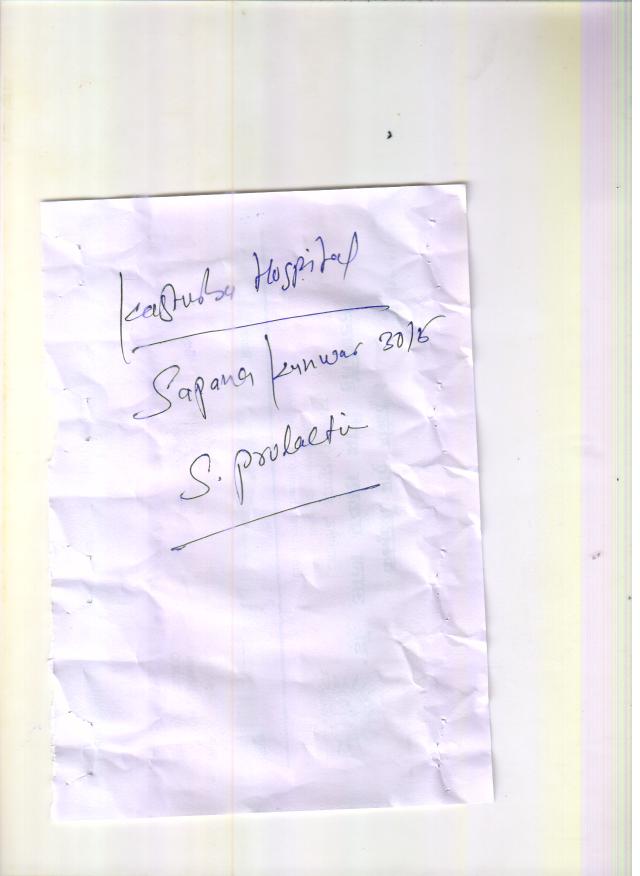 Kasturba Hospital
Sapana Kunwar 30/F
S. prolactin